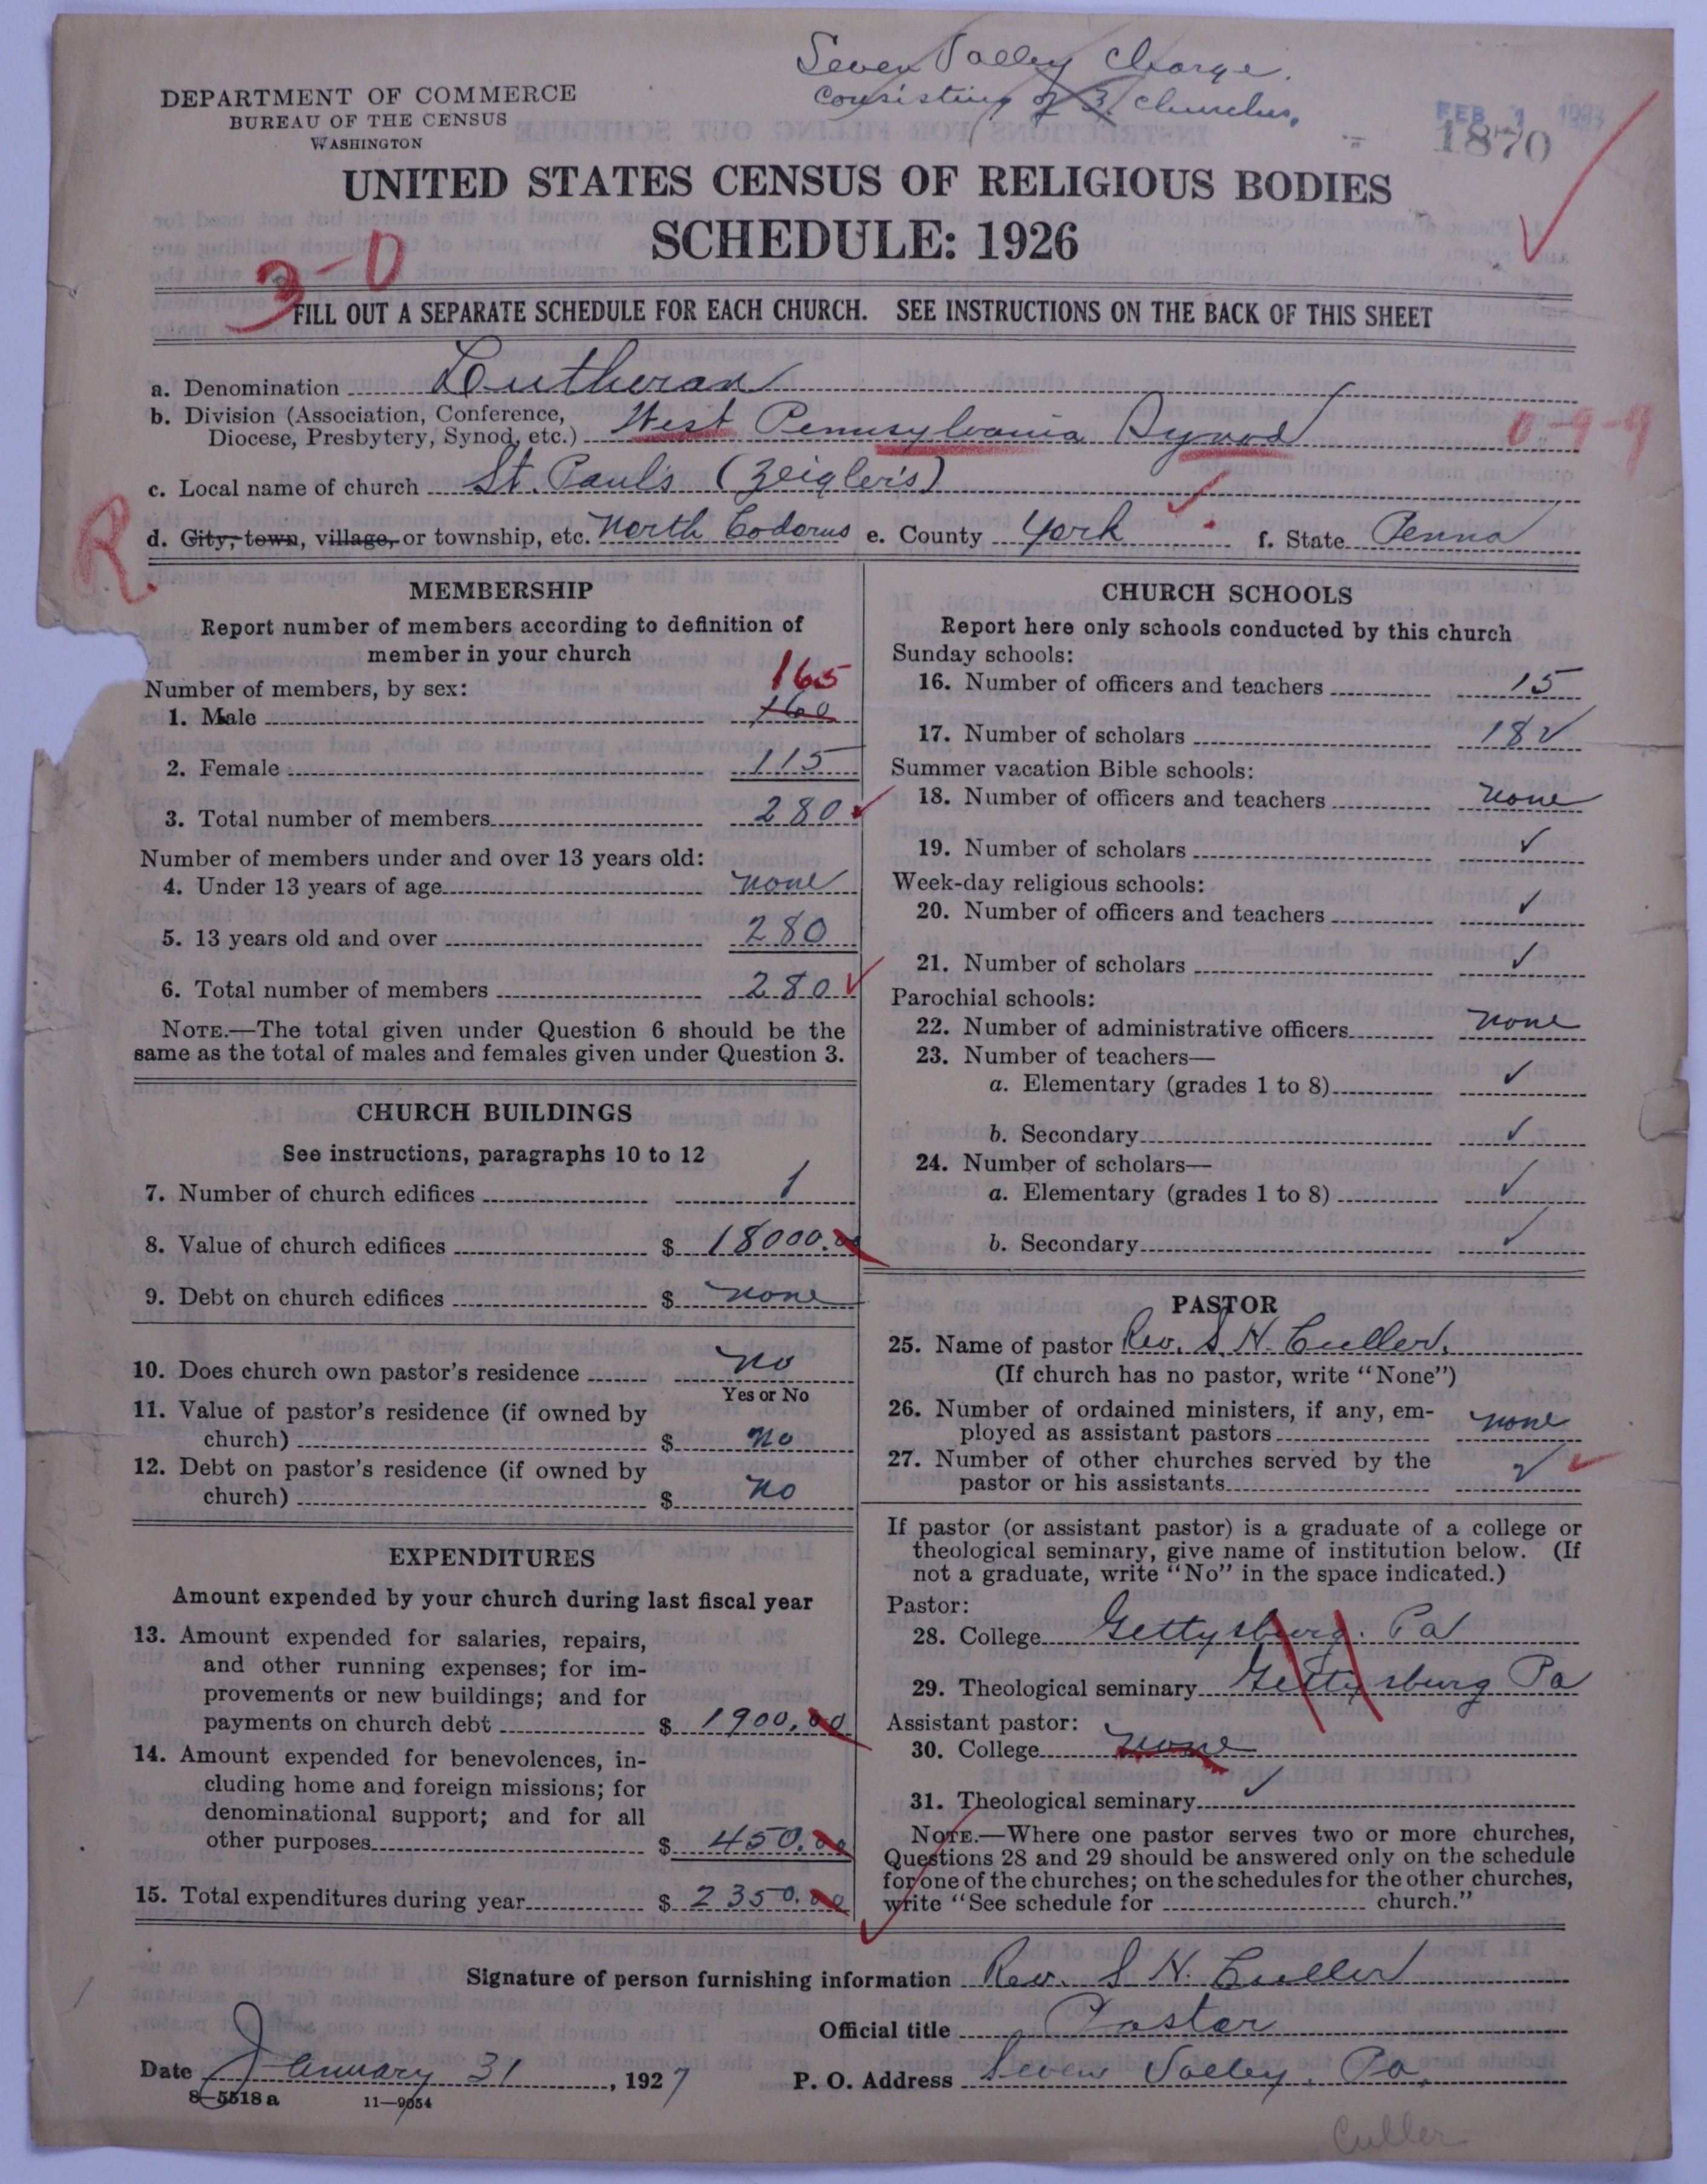 Seven Valley Charge.
Consisting of 3 Churches.
DEPARTMENT OF COMMERCE
BUREAU OF THE CENSUS
WASHINGTON
FEB 1
1870
UNITED STATES CENSUS OF RELIGIOUS BODIES
SCHEDULE: 1926
3-0
FILL OUT A SEPARATE SCHEDULE FOR EACH CHURCH. SEE INSTRUCTIONS ON THE BACK OF THIS SHEET
a. Denomination Lutheran
b. Division (Association, Conference,
Diocese, Presbytery, Synod, etc.) West Pennsylvania Synod 0-9-9
c. Local name of church St. Paul's (Zeigler's)
R
d. City, town, village, or township, etc. North Codorus e. County York f. State Penna
MEMBERSHIP
Report number of members according to definition of
member in your church
Number of members, by sex: 165
1. Male 160
2. Female 115
3. Total number of members 280
Number of members under and over 13 years old:
4. Under 13 years of age none
5. 13 years old and over 280
6. Total number of members 280
NOTE.—The total given under Question 6 should be the
same as the total of males and females given under Question 3.
CHURCH BUILDINGS
See instructions, paragraphs 10 to 12
7. Number of church edifices 1
8. Value of church edifices $ 18000.00
9. Debt on church edifices $ none
10. Does church own pastor's residence no
Yes or No
11. Value of pastor's residence (if owned by
church) $ no
12. Debt on pastor's residence (if owned by
church) $ no
EXPENDITURES
Amount expended by your church during last fiscal year
13. Amount expended for salaries, repairs,
and other running expenses; for im-
provements or new buildings; and for
payments on church debt $ 1900.00
14. Amount expended for benevolences, in-
cluding home and foreign missions; for
denominational support; and for all
other purposes $ 450.00
15. Total expenditures during year $ 2350.00
CHURCH SCHOOLS
Report here only schools conducted by this church
Sunday schools:
16. Number of officers and teachers 15
17. Number of scholars 182
Summer vacation Bible schools:
18. Number of officers and teachers none
19. Number of scholars ✓
Week-day religious schools:
20. Number of officers and teachers ✓
21. Number of scholars ✓
Parochial schools:
22. Number of administrative officers none
23. Number of teachers—
a. Elementary (grades 1 to 8) ✓
b. Secondary ✓
24. Number of scholars—
a. Elementary (grades 1 to 8) ✓
b. Secondary ✓
PASTOR
25. Name of pastor Rev. S. H. Culler.
(If church has no pastor, write "None")
26. Number of ordained ministers, if any, em-
ployed as assistant pastors none
27. Number of other churches served by the
pastor or his assistants 2
If pastor (or assistant pastor) is a graduate of a college or
theological seminary, give name of institution below. (If
not a graduate, write "No" in the space indicated.)
Pastor:
28. College Gettysburg. Pa
29. Theological seminary Gettysburg Pa
Assistant pastor:
30. College none
31. Theological seminary ✓
NOTE.—Where one pastor serves two or more churches,
Questions 28 and 29 should be answered only on the schedule
for one of the churches; on the schedules for the other churches,
write "See schedule for church."
Signature of person furnishing information Rev. S. H. Culler
Official title Pastor
Date January 31, 1927 P. O. Address Seven Valley, Pa.
8—5518 a 11—9054
Culler